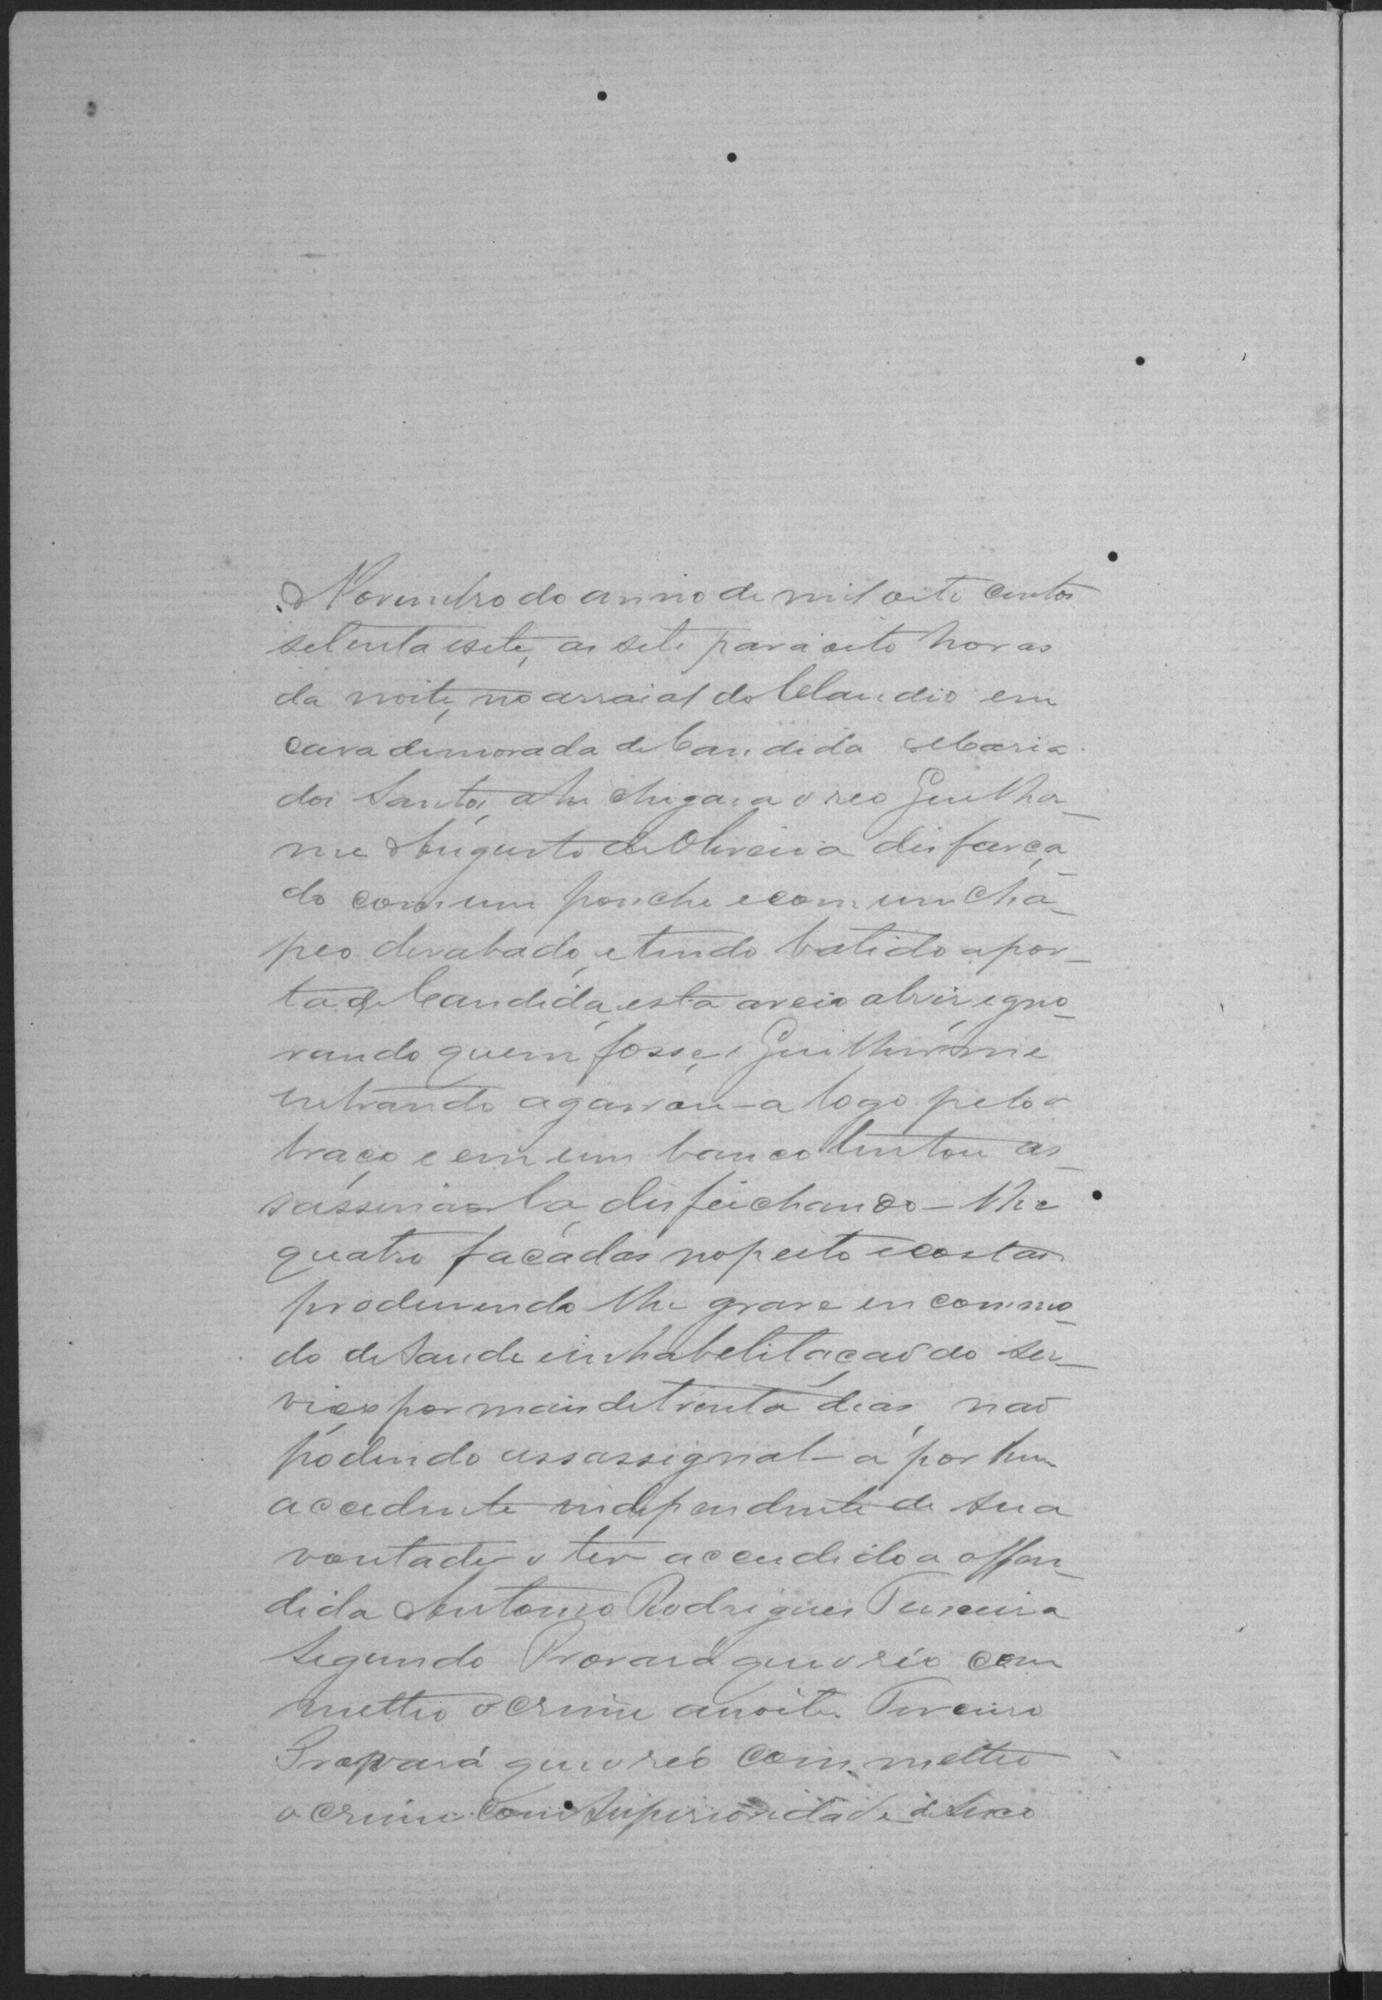 Novembro do anno de mil oito centos
setenta e sete, as sete para oito horas
da noite, no arraial do Claudio em
casa de morada de Candida Maria
dos Santos, ahi chegara o reo Guilher_
me Augusto de Oliveira disfarça_
do com um ponche e com um cha_
peo desabado, e tendo batido a por_
ta de Candida, esta a veio abrir, igno_
rando quem fosse, e Guilherme
entrando agarrou-a logo pelo
braço e em um banco tentou as_
sassina la, disfeichando-lhe
quatro facadas no peito e costas
produsindo lhe grave encommo_
do de saude e inhabelitação do ser_
viço por mais de trinta dias, não
podendo assassignal-a por hum
accidente independente de sua
vontade o ter accudido a offen_
dida Antonio Rodrigues Teixeira
Segundo Provará que o réo com
metteo o crime a noite. Terceiro
Provará que o réo commetteo
o crime com superioridade de sexo